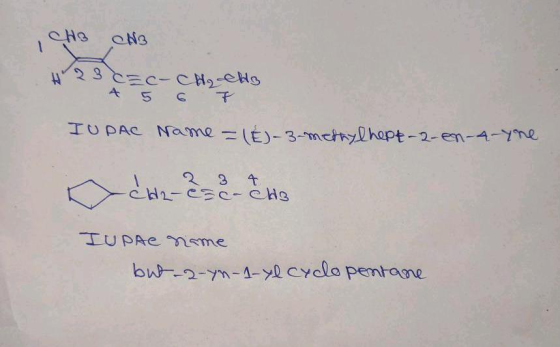 1 CH3 CH3
H 2 3 C≡C- CH2-CH3
4 5 6 7
IUPAC Name = (E)-3-methylhept-2-en-4-yne
1 2 3 4
CH2-C≡C-CH3
IUPAC name
but-2-yn-1-yl cyclopentane